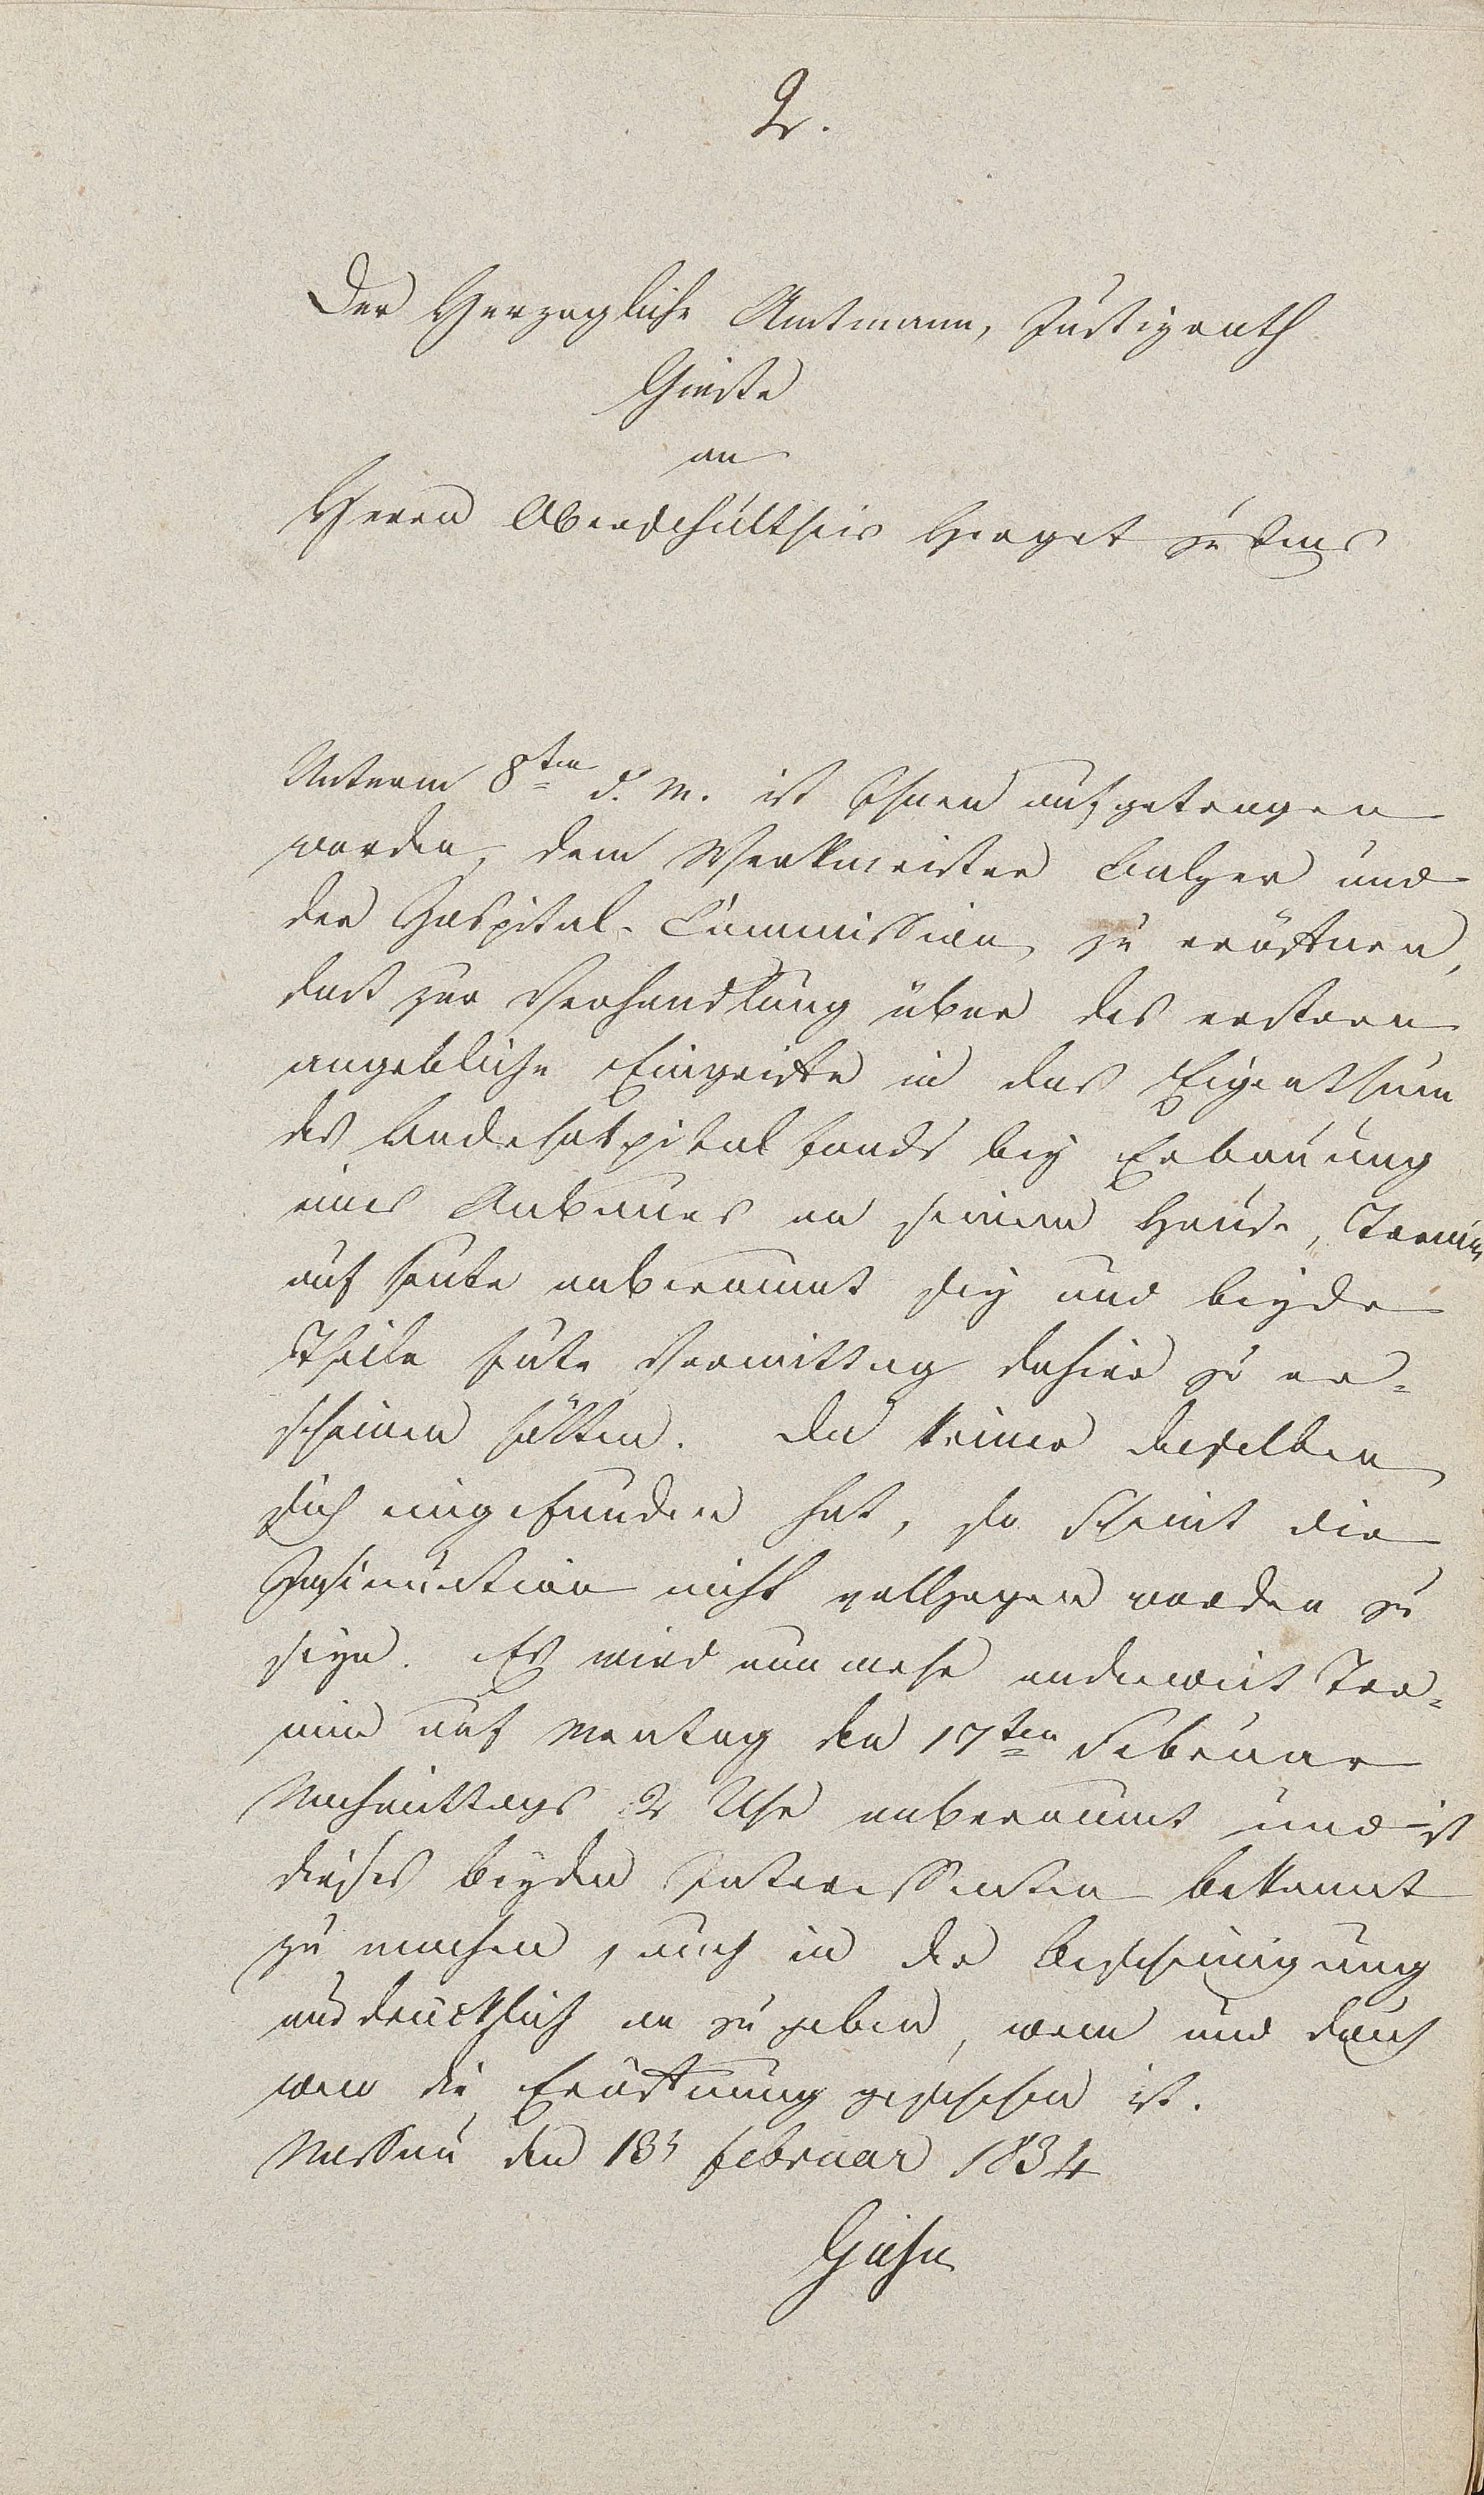 2.
Der Herzogliche Amtmann, Justizrath
Giesse
an
Herrn Oberschultheis Herget zu Ems
Unterm 8ten d. M. ist Ihnen aufgetragen
worden, dem Werkmeister Balzer und
der Hospital-Commission zu eröffnen,
daß zur Verhandlung über des erstern
angebliche Eingriffe in das Eigenthum
des Landeshospitalfonds bey Erbauung
eines Anbaues an seinem Hause, Termin
auf heute anberaumt sey und beyde
Theile heute Vormittag dahier zu er-
scheinen hätten. Da keiner derselben
sich eingefunden hat, so scheint die
Insinuation nicht vollzogen worden zu
seyn. Es wird nunmehr anderweit Ter-
min auf Montag den 17ten Februar
Nachmittags 2 Uhr anberaumt und ist
dieses beyden Interessenten bekannt
zu machen, auch in der Bescheinigung
ausdrücklich an zu geben, wem und durch
wen die Eröffnung geschehen ist.
Nassau den 13t Februar 1834
Giesse